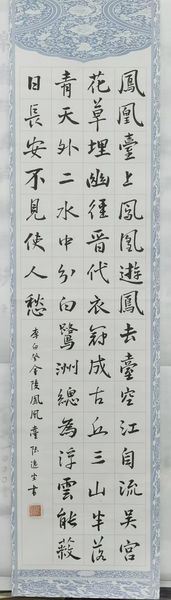 鳳凰臺上鳳凰遊鳳去臺空江自流吳宮
花草埋幽徑晉代衣冠成古丘三山半落
青天外二水中分白鷺洲總為浮雲能蔽
日長安不見使人愁
李白登金陵鳳凰臺 書